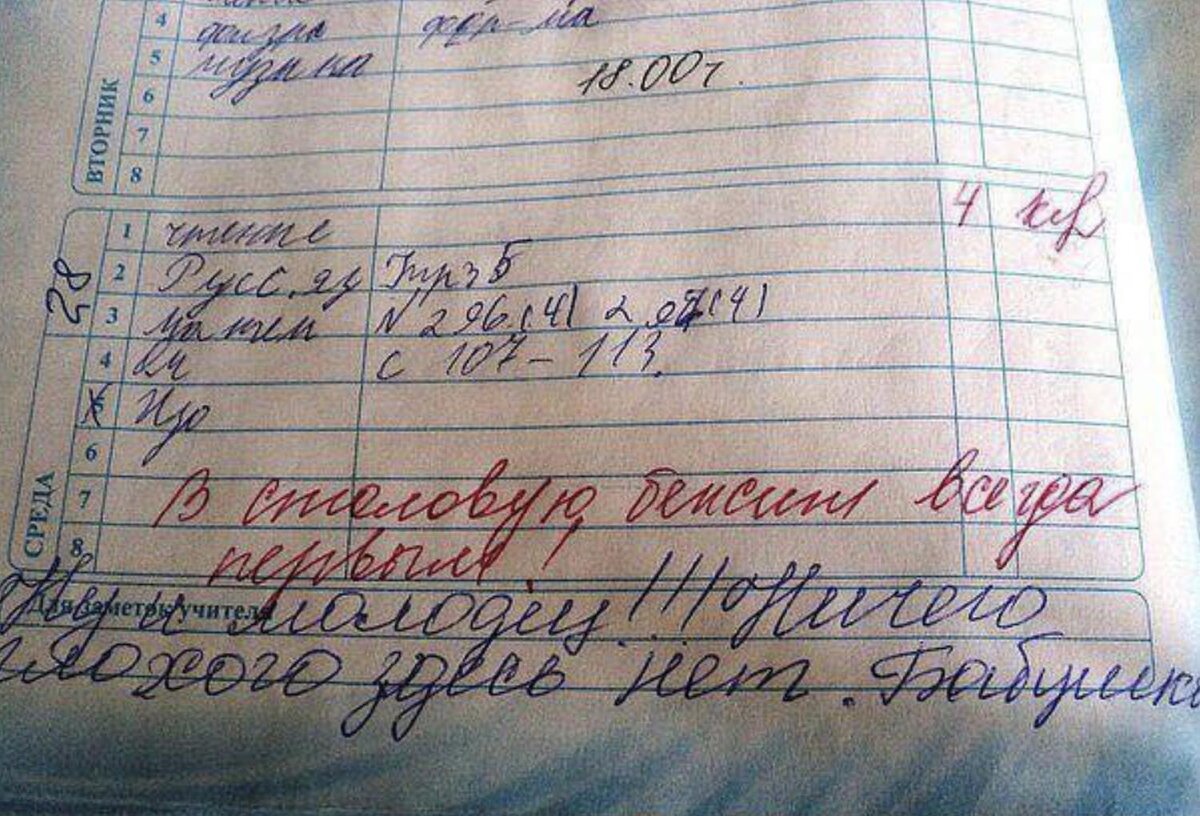 4 физра фор-ма
5 музыка
18.00ч.
ВТОРНИК
6
7
8
28
СРЕДА
1 чтение 4
2 Русс.яз Тпр з Б
3 матем N 296.(4) 2 (4)
4 с 107 - 113.
5 Изо
6
7 В столовую бежит всегда
8 первым!
Для заметок учителя
Ну и молодец!!! Ничего
плохого здесь нет. Бабушка